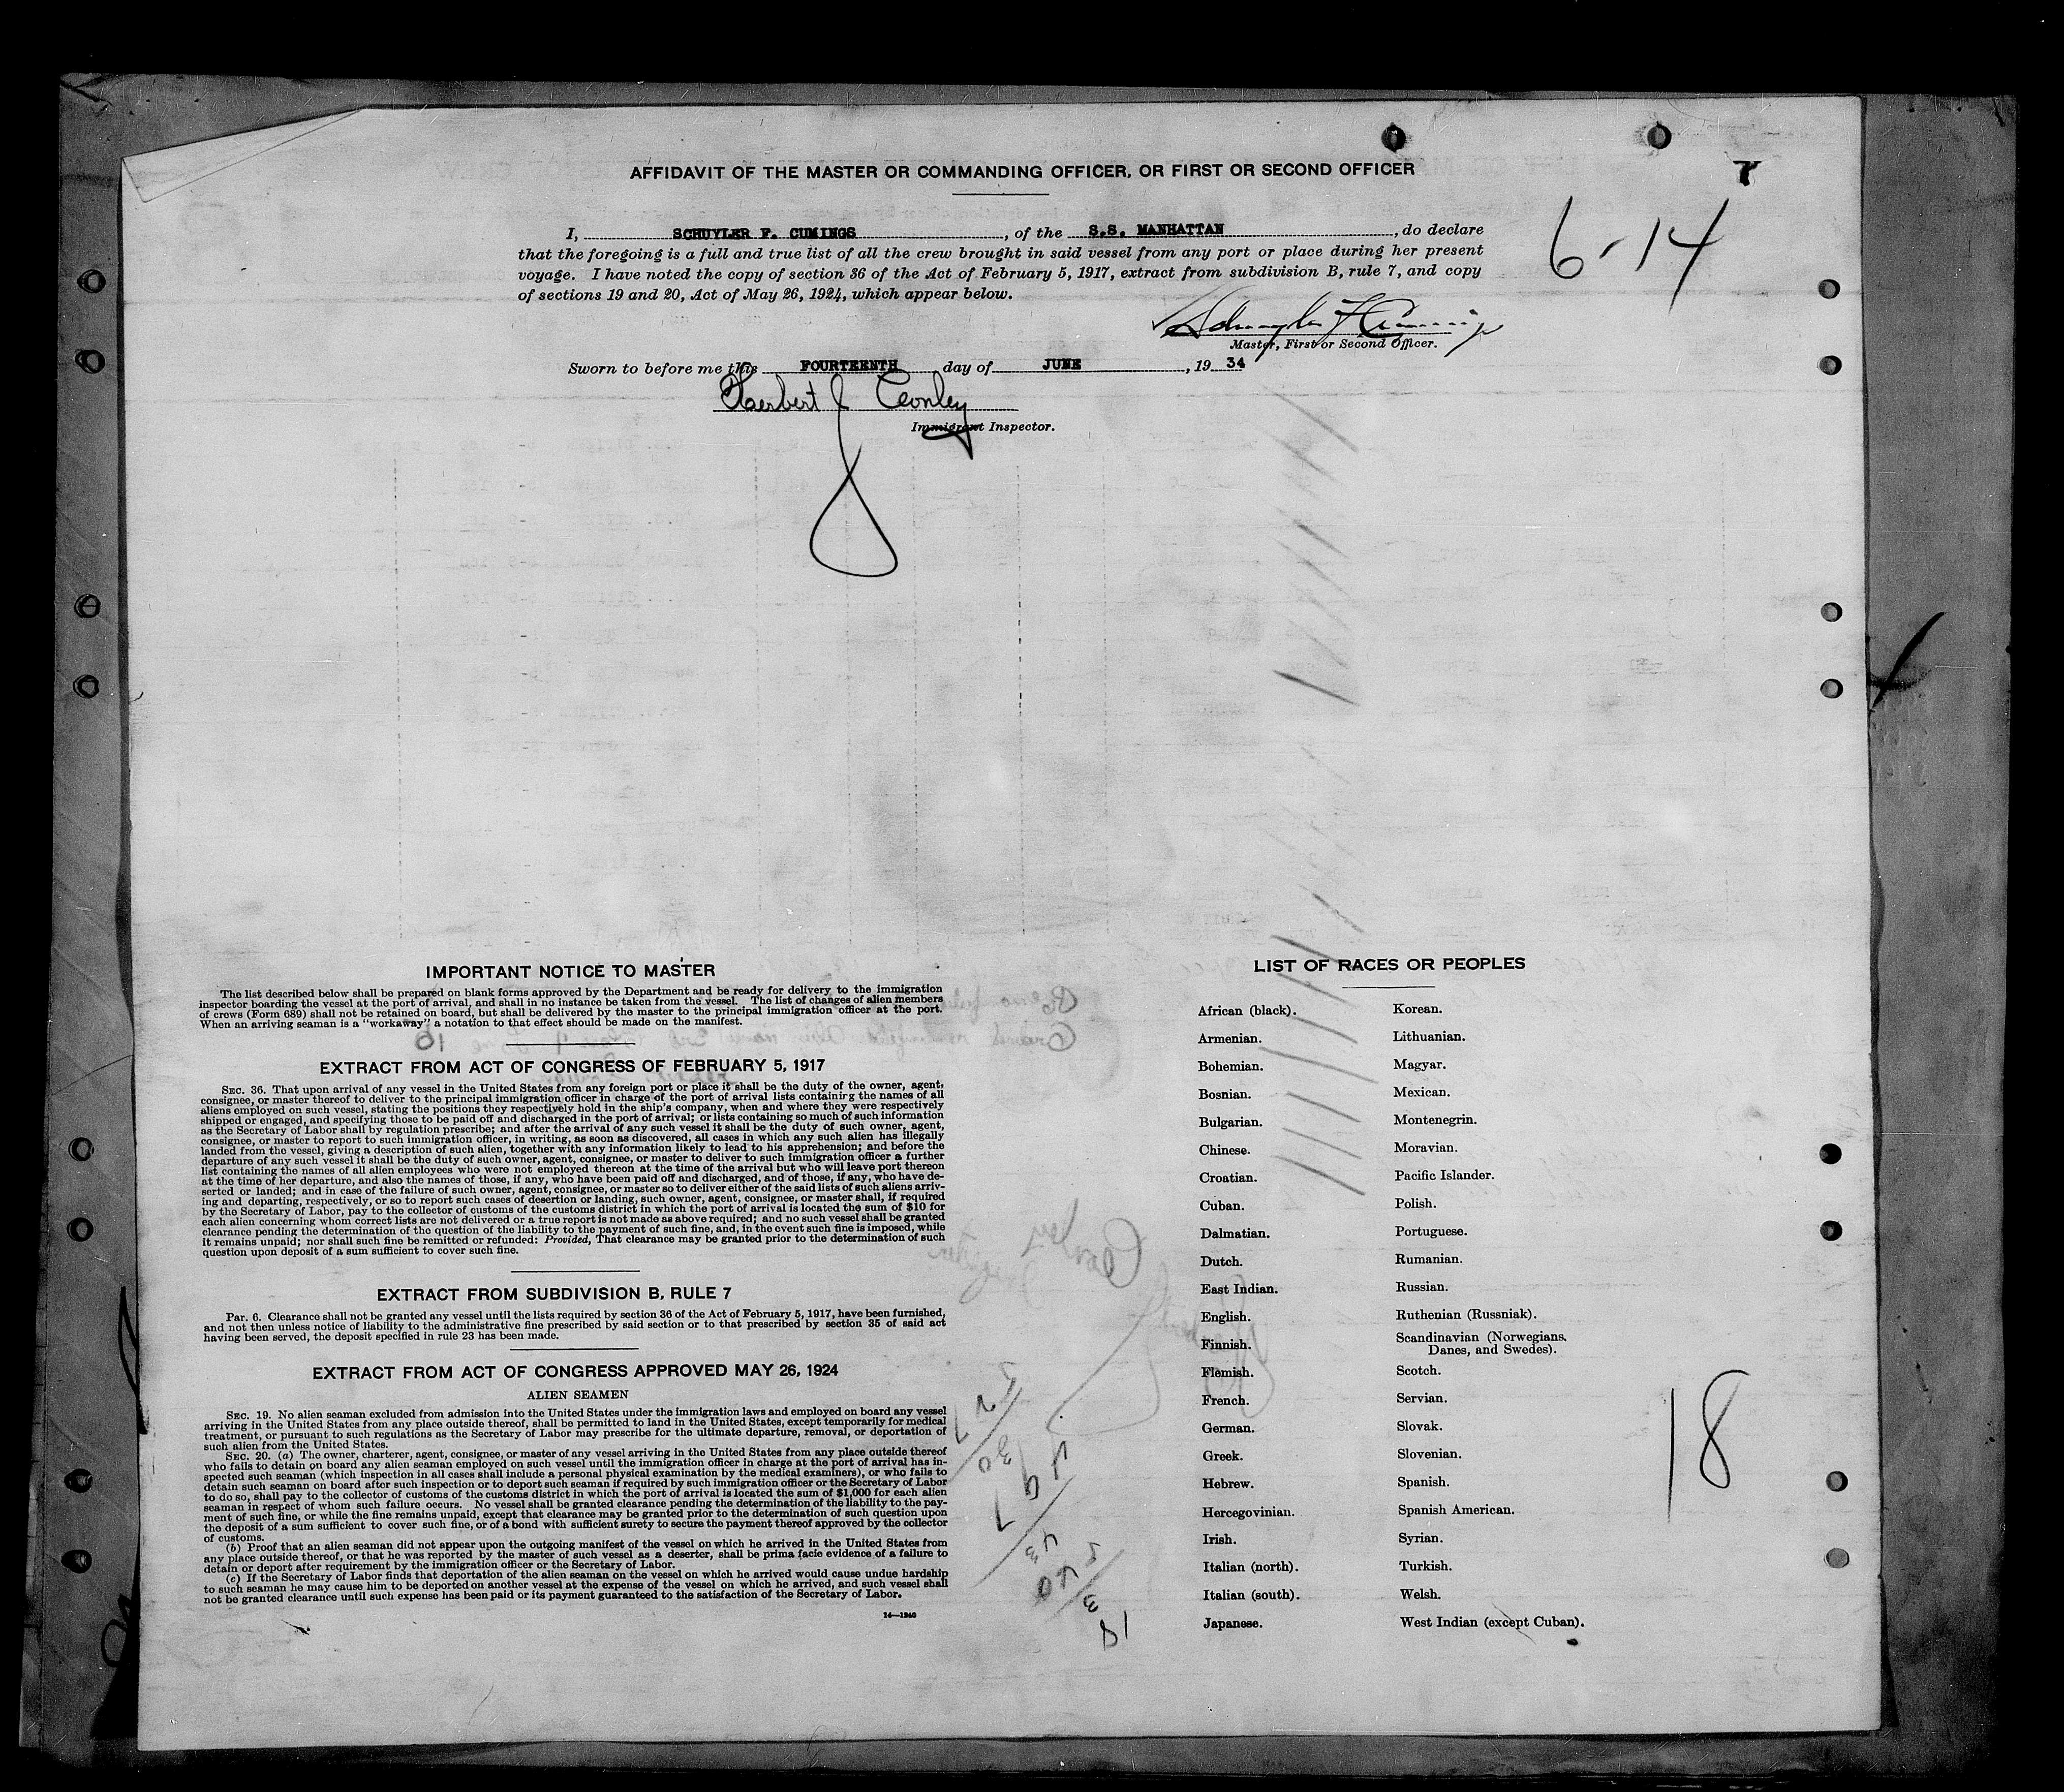 AFFIDAVIT OF THE MASTER OR COMMANDING OFFICER, OR FIRST OR SECOND OFFICER
7
6-14
I, SCHUYLER F. CUMINGS, of the S.S. MANHATTAN, do declare
that the foregoing is a full and true list of all the crew brought in said vessel from any port or place during her present
voyage. I have noted the copy of section 36 of the Act of February 5, 1917, extract from subdivision B, rule 7, and copy
of sections 19 and 20, Act of May 26, 1924, which appear below.
Schuyler F Cumings
Master, First or Second Officer.
Sworn to before me this FOURTEENTH day of JUNE, 19 34
Herbert J Conley
Immigrant Inspector.
IMPORTANT NOTICE TO MASTER
The list described below shall be prepared on blank forms approved by the Department and be ready for delivery to the immigration
inspector boarding the vessel at the port of arrival, and shall in no instance be taken from the vessel. The list of changes of alien members
of crews (Form 689) shall not be retained on board, but shall be delivered by the master to the principal immigration officer at the port.
When an arriving seaman is a "workaway" a notation to that effect should be made on the manifest.
EXTRACT FROM ACT OF CONGRESS OF FEBRUARY 5, 1917
SEC. 36. That upon arrival of any vessel in the United States from any foreign port or place it shall be the duty of the owner, agent,
consignee, or master thereof to deliver to the principal immigration officer in charge of the port of arrival lists containing the names of all
aliens employed on such vessel, stating the positions they respectively hold in the ship's company, when and where they were respectively
shipped or engaged, and specifying those to be paid off and discharged in the port of arrival; or lists containing so much of such information
as the Secretary of Labor shall by regulation prescribe; and after the arrival of any such vessel it shall be the duty of such owner, agent,
consignee, or master to report to such immigration officer, in writing, as soon as discovered, all cases in which any such alien has illegally
landed from the vessel, giving a description of such alien, together with any information likely to lead to his apprehension; and before the
departure of any such vessel it shall be the duty of such owner, agent, consignee, or master to deliver to such immigration officer a further
list containing the names of all alien employees who were not employed thereon at the time of the arrival but who will leave port thereon
at the time of her departure, and also the names of those, if any, who have been paid off and discharged, and of those, if any, who have de-
serted or landed; and in case of the failure of such owner, agent, consignee, or master so to deliver either of the said lists of such aliens arriv-
ing and departing, respectively, or so to report such cases of desertion or landing, such owner, agent, consignee, or master shall, if required
by the Secretary of Labor, pay to the collector of customs of the customs district in which the port of arrival is located the sum of $10 for
each alien concerning whom correct lists are not delivered or a true report is not made as above required; and no such vessel shall be granted
clearance pending the determination of the question of the liability to the payment of such fine, and, in the event such fine is imposed, while
it remains unpaid; nor shall such fine be remitted or refunded: Provided, That clearance may be granted prior to the determination of such
question upon deposit of a sum sufficient to cover such fine.
EXTRACT FROM SUBDIVISION B, RULE 7
PAR. 6. Clearance shall not be granted any vessel until the lists required by section 36 of the Act of February 5, 1917, have been furnished,
and not then unless notice of liability to the administrative fine prescribed by said section or to that prescribed by section 35 of said act
having been served, the deposit specified in rule 23 has been made.
EXTRACT FROM ACT OF CONGRESS APPROVED MAY 26, 1924
ALIEN SEAMEN
SEC. 19. No alien seaman excluded from admission into the United States under the immigration laws and employed on board any vessel
arriving in the United States from any place outside thereof, shall be permitted to land in the United States, except temporarily for medical
treatment, or pursuant to such regulations as the Secretary of Labor may prescribe for the ultimate departure, removal, or deportation of
such alien from the United States.
SEC. 20. (a) The owner, charterer, agent, consignee, or master of any vessel arriving in the United States from any place outside thereof
who fails to detain on board any alien seaman employed on such vessel until the immigration officer in charge at the port of arrival has in-
spected such seaman (which inspection in all cases shall include a personal physical examination by the medical examiners), or who fails to
detain such seaman on board after such inspection or to deport such seaman if required by such immigration officer or the Secretary of Labor
to do so, shall pay to the collector of customs of the customs district in which the port of arrival is located the sum of $1,000 for each alien
seaman in respect of whom such failure occurs. No vessel shall be granted clearance pending the determination of the liability to the pay-
ment of such fine, or while the fine remains unpaid, except that clearance may be granted prior to the determination of such question upon
the deposit of a sum sufficient to cover such fine, or of a bond with sufficient surety to secure the payment thereof approved by the collector
of customs.
(b) Proof that an alien seaman did not appear upon the outgoing manifest of the vessel on which he arrived in the United States from
any place outside thereof, or that he was reported by the master of such vessel as a deserter, shall be prima facie evidence of a failure to
detain or deport after requirement by the immigration officer or the Secretary of Labor.
(c) If the Secretary of Labor finds that deportation of the alien seaman on the vessel on which he arrived would cause undue hardship
to such seaman he may cause him to be deported on another vessel at the expense of the vessel on which he arrived, and such vessel shall
not be granted clearance until such expense has been paid or its payment guaranteed to the satisfaction of the Secretary of Labor.
14—1240
LIST OF RACES OR PEOPLES
African (black).
Armenian.
Bohemian.
Bosnian.
Bulgarian.
Chinese.
Croatian.
Cuban.
Dalmatian.
Dutch.
East Indian.
English.
Finnish.
Flemish.
French.
German.
Greek.
Hebrew.
Hercegovinian.
Irish.
Italian (north).
Italian (south).
Japanese.
Korean.
Lithuanian.
Magyar.
Mexican.
Montenegrin.
Moravian.
Pacific Islander.
Polish.
Portuguese.
Rumanian.
Russian.
Ruthenian (Russniak).
Scandinavian (Norwegians,
Danes, and Swedes).
Scotch.
Servian.
Slovak.
Slovenian.
Spanish.
Spanish American.
Syrian.
Turkish.
Welsh.
West Indian (except Cuban).
18